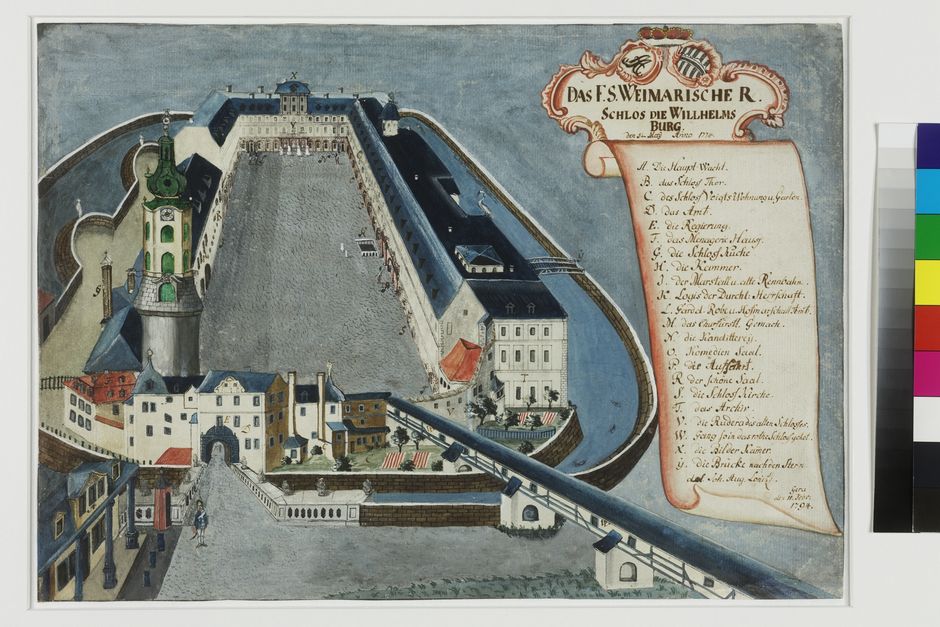 DAS F. S. WEIMARISCHE R.
SCHLOS DIE WILLHELMS
BURG.
Anno
A. Die Haupt-Wacht.
B. das Schloss Thor.
C. des Schloss Voigts Wohnung u. Garten.
D. das Amt.
E. die Regierung.
F. das Menagerie Hauss.
G. die Schloss Küche
H. die Kemmer.
J. der Marstall u. alte Rennbahn.
K. Logis der Durchl. Herrschaft.
L. Gardel Robe u. Hofmarschall Amt.
M. das Churfürstl. Gemach.
N. die Kanditterey.
O. Komedien Saal.
P. die Auffahrt.
R. der schöne Saal.
S. die Schloss Kirche.
T. das Archiv.
V. die Rudera des alten Schlosses.
W. Gang so in das rothe Schlos gehet.
X. die Bilder Kamer.
Y. die Brücke nach den Stern
del Joh. Aug.
Gera
1794.
X
E
T
S
W